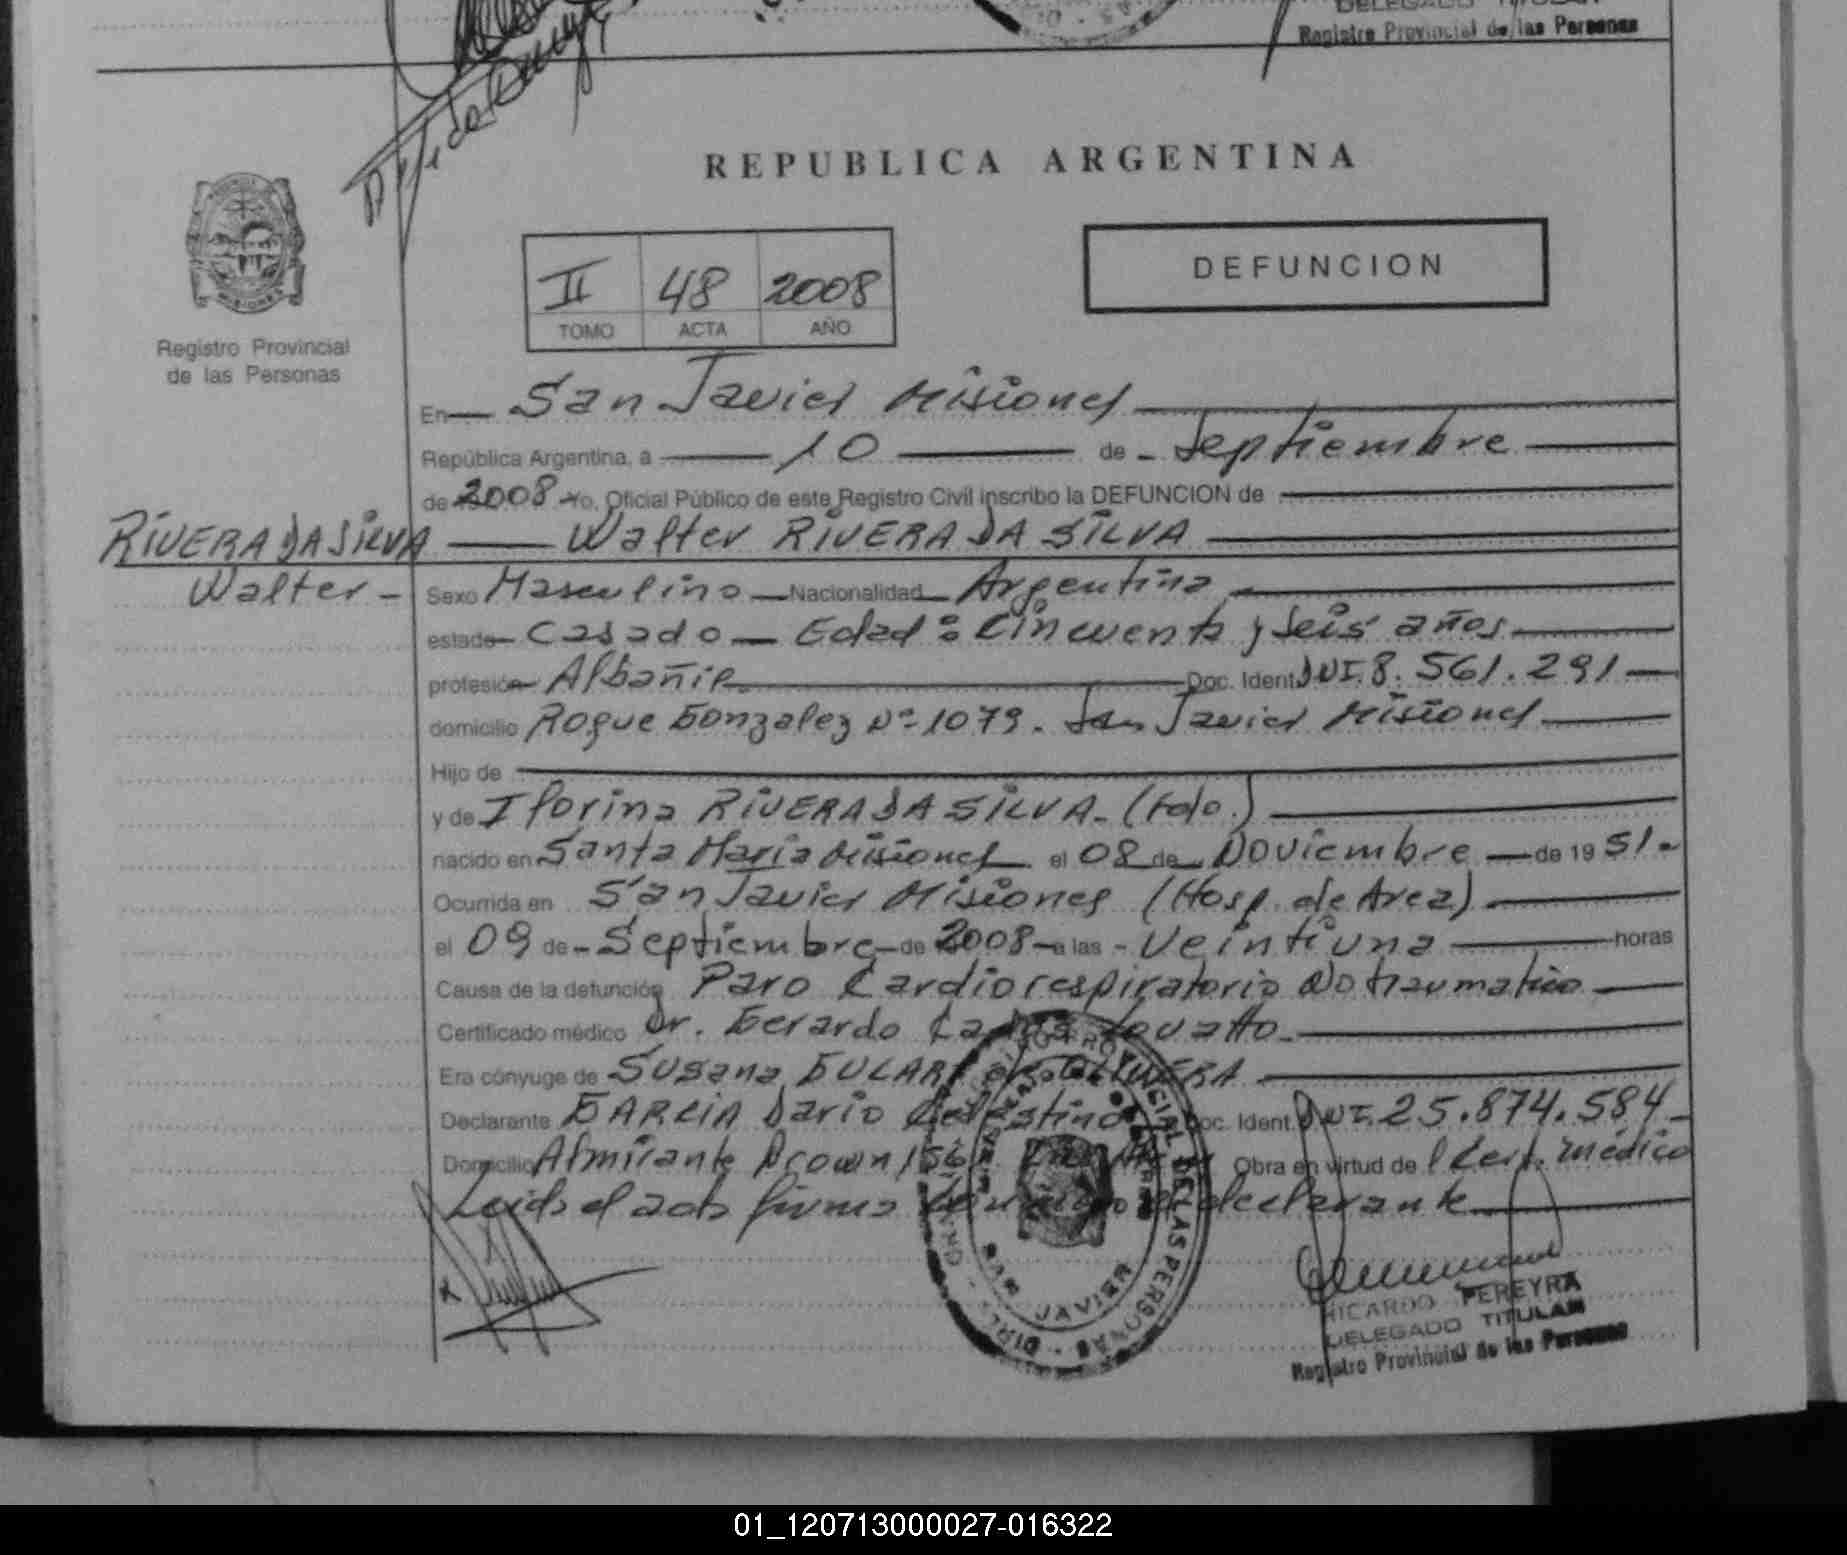 DELEGADO TITULAR
Registro Provincial de las Personas
REPUBLICA ARGENTINA
II 48 2008
TOMO ACTA AÑO
DEFUNCION
Registro Provincial
de las Personas
En San Javier Misiones
República Argentina, a 10 de Septiembre
de 2008 Yo, Oficial Público de este Registro Civil inscribo la DEFUNCION de
RIVERA DA SILVA Walter RIVERA DA SILVA
Walter - Sexo Masculino Nacionalidad Argentina
estado Casado Edad: Cincuenta y Seis años
profesión Albañil Doc. Ident. DNI. 8.561.291
domicilio Roque Gonzalez Nº 1079. San Javier Misiones
Hijo de
y de Iforina RIVERA DA SILVA. (fdo.)
nacido en Santa María Misiones el 08 de Noviembre de 1951.
Ocurrida en San Javier Misiones (Hosp. de Area)
el 09 de Septiembre de 2008 a las Veintiuna horas
Causa de la defunción Paro Cardiorespiratorio No traumatico
Certificado médico Dr. Gerardo Carlos Lovatto
Era cónyuge de Susana
Declarante GARCIA Dario Celestino Doc. Ident. DNI. 25.874.584
Domicilio Almirante Brown 156 Obra en virtud de Cert. médico
Leida el acta firma conmigo el declarante
SAN JAVIER
RICARDO PEREYRA
DELEGADO TITULAR
Registro Provincial de las Personas
01_120713000027-016322